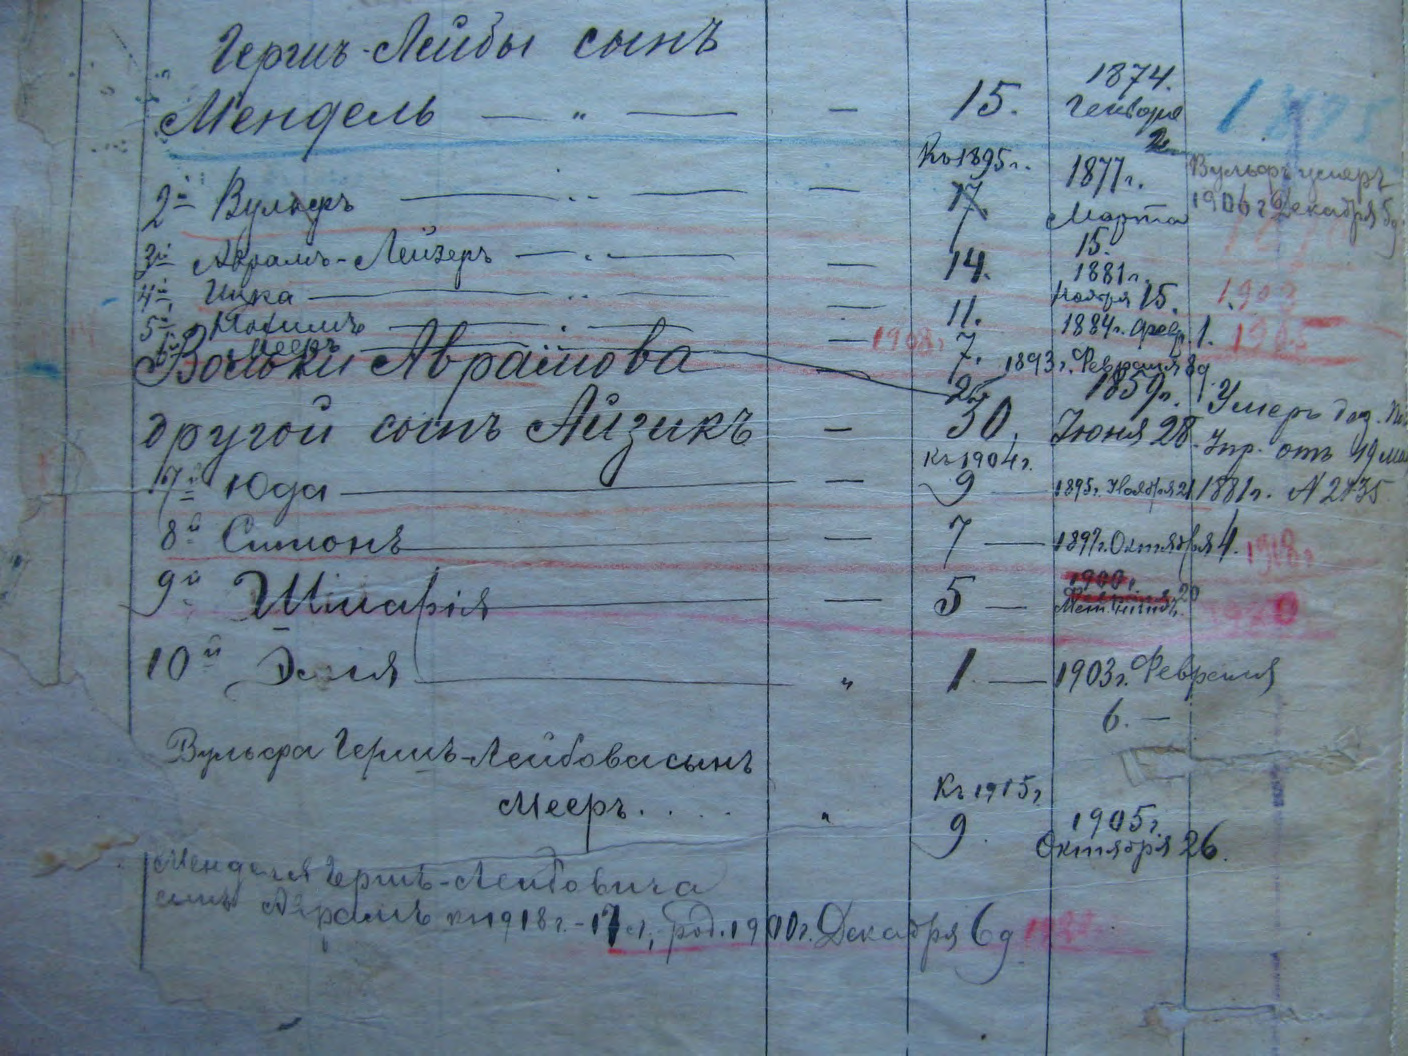 Гершъ-Лейбы сынъ
1874.
Мендель — " — — 15. Генваря 1895
2
Къ 1895 г.
2й Вульфъ — " — — 17 1877 г. Вульфъ умеръ
Марта 1906 г. Декабря 5 д.
15.
3й Абрамъ-Лейзеръ — " — — 14. 1881 г.
Ноября 15. 1903
4й Ицка — " — — 11. 1884 г. Февр. 1. 1905
5й — " — — 1908 г. 7. 1893 г. Февраля 8 д
6й Мееръ
Вольки Абрамова 1859 г. Умеръ
другой сынъ Айзикъ — 30. Июня 28. отъ 19
Къ 1904 г.
7й Юда — — 9 — 1895 г. Ноября 21 1881 г. N 2735
8й Симонъ — — 7 — 1897 г. Октября 4. 1918 г
9й Шмарія — — 5 — 1900 г.
Февраля 20
10й — " 1 — 1903 г. Февраля
6. —
Вульфа Гершъ-Лейбова сынъ
Къ 1915 г
Мееръ. . . . . " 9. 1905 г.
Октября 26.
Менделя Гершъ-Лейбовича
сынъ Абрамъ къ 1918 г. - 17 л, род. 1900 г. Декабря 6 д